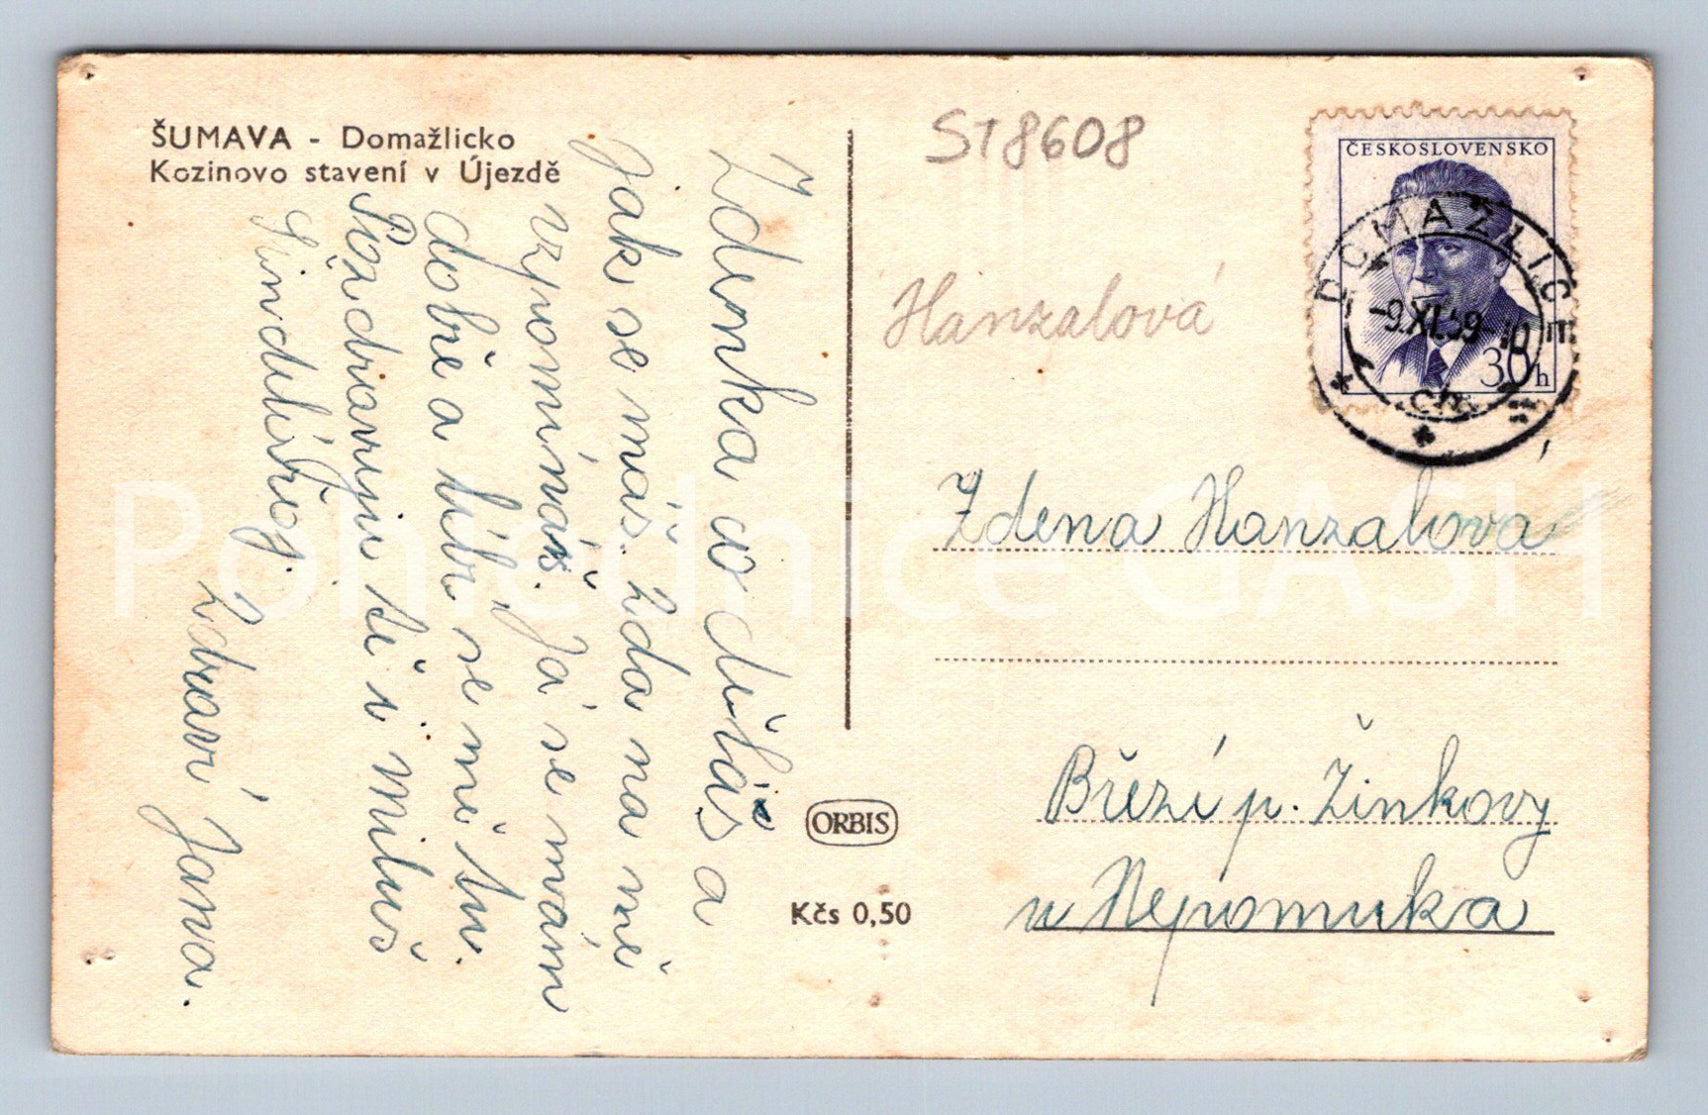 ŠUMAVA - Domažlicko
Kozinovo stavení v Újezdě
Zdenka co děláš a
jak se máš. Zda na mě
vzpomínáš. Já se mám
dobře a líbí se mě tu.
Pozdravuju tě i Miluš
Jindřišky.
Zdraví Jana.
ST8608
Hanzalová
ČESKOSLOVENSKO
30h
DOMAŽLICE
-9.XI.59-10
Zdena Hanzalova
Březí p. Žinkovy
u Nepomuka
ORBIS
Kčs 0,50
Pohlednice GASH